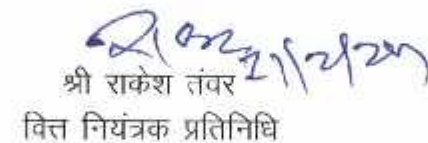 श्री राकेश तंवर
वित्त नियंत्रक प्रतिनिधि